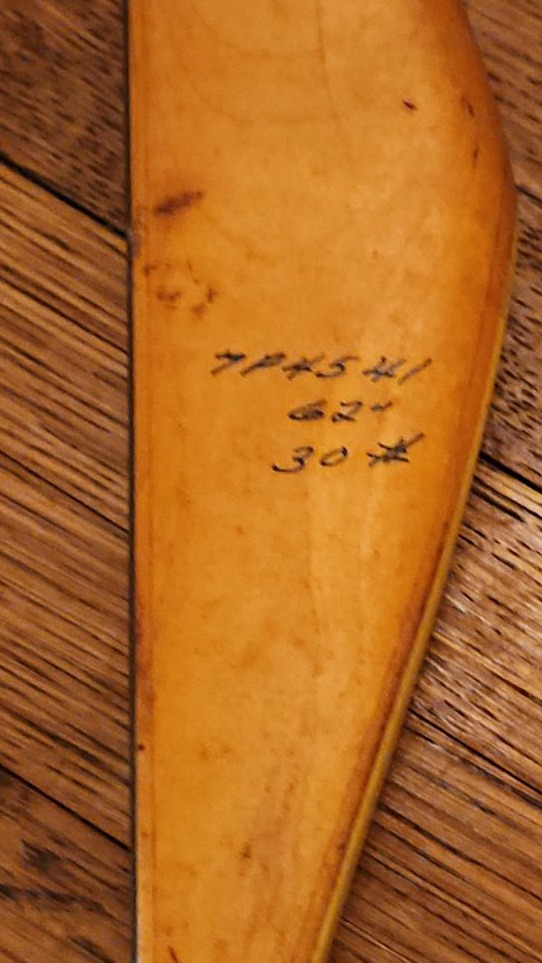 7P4541
62"
30#